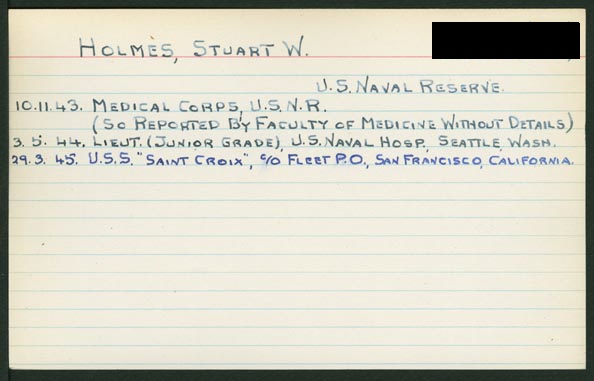 HOLMES, STUART W.
U.S. NAVAL RESERVE.
10.11.43. MEDICAL CORPS, U.S.N.R.
(SO REPORTED BY FACULTY OF MEDICINE WITHOUT DETAILS)
3. 5. 44. LIEUT. (JUNIOR GRADE), U.S. NAVAL HOSP., SEATTLE, WASH.
29. 3. 45. U.S.S. "SAINT CROIX", C/O FLEET P.O., SAN FRANCISCO, CALIFORNIA.